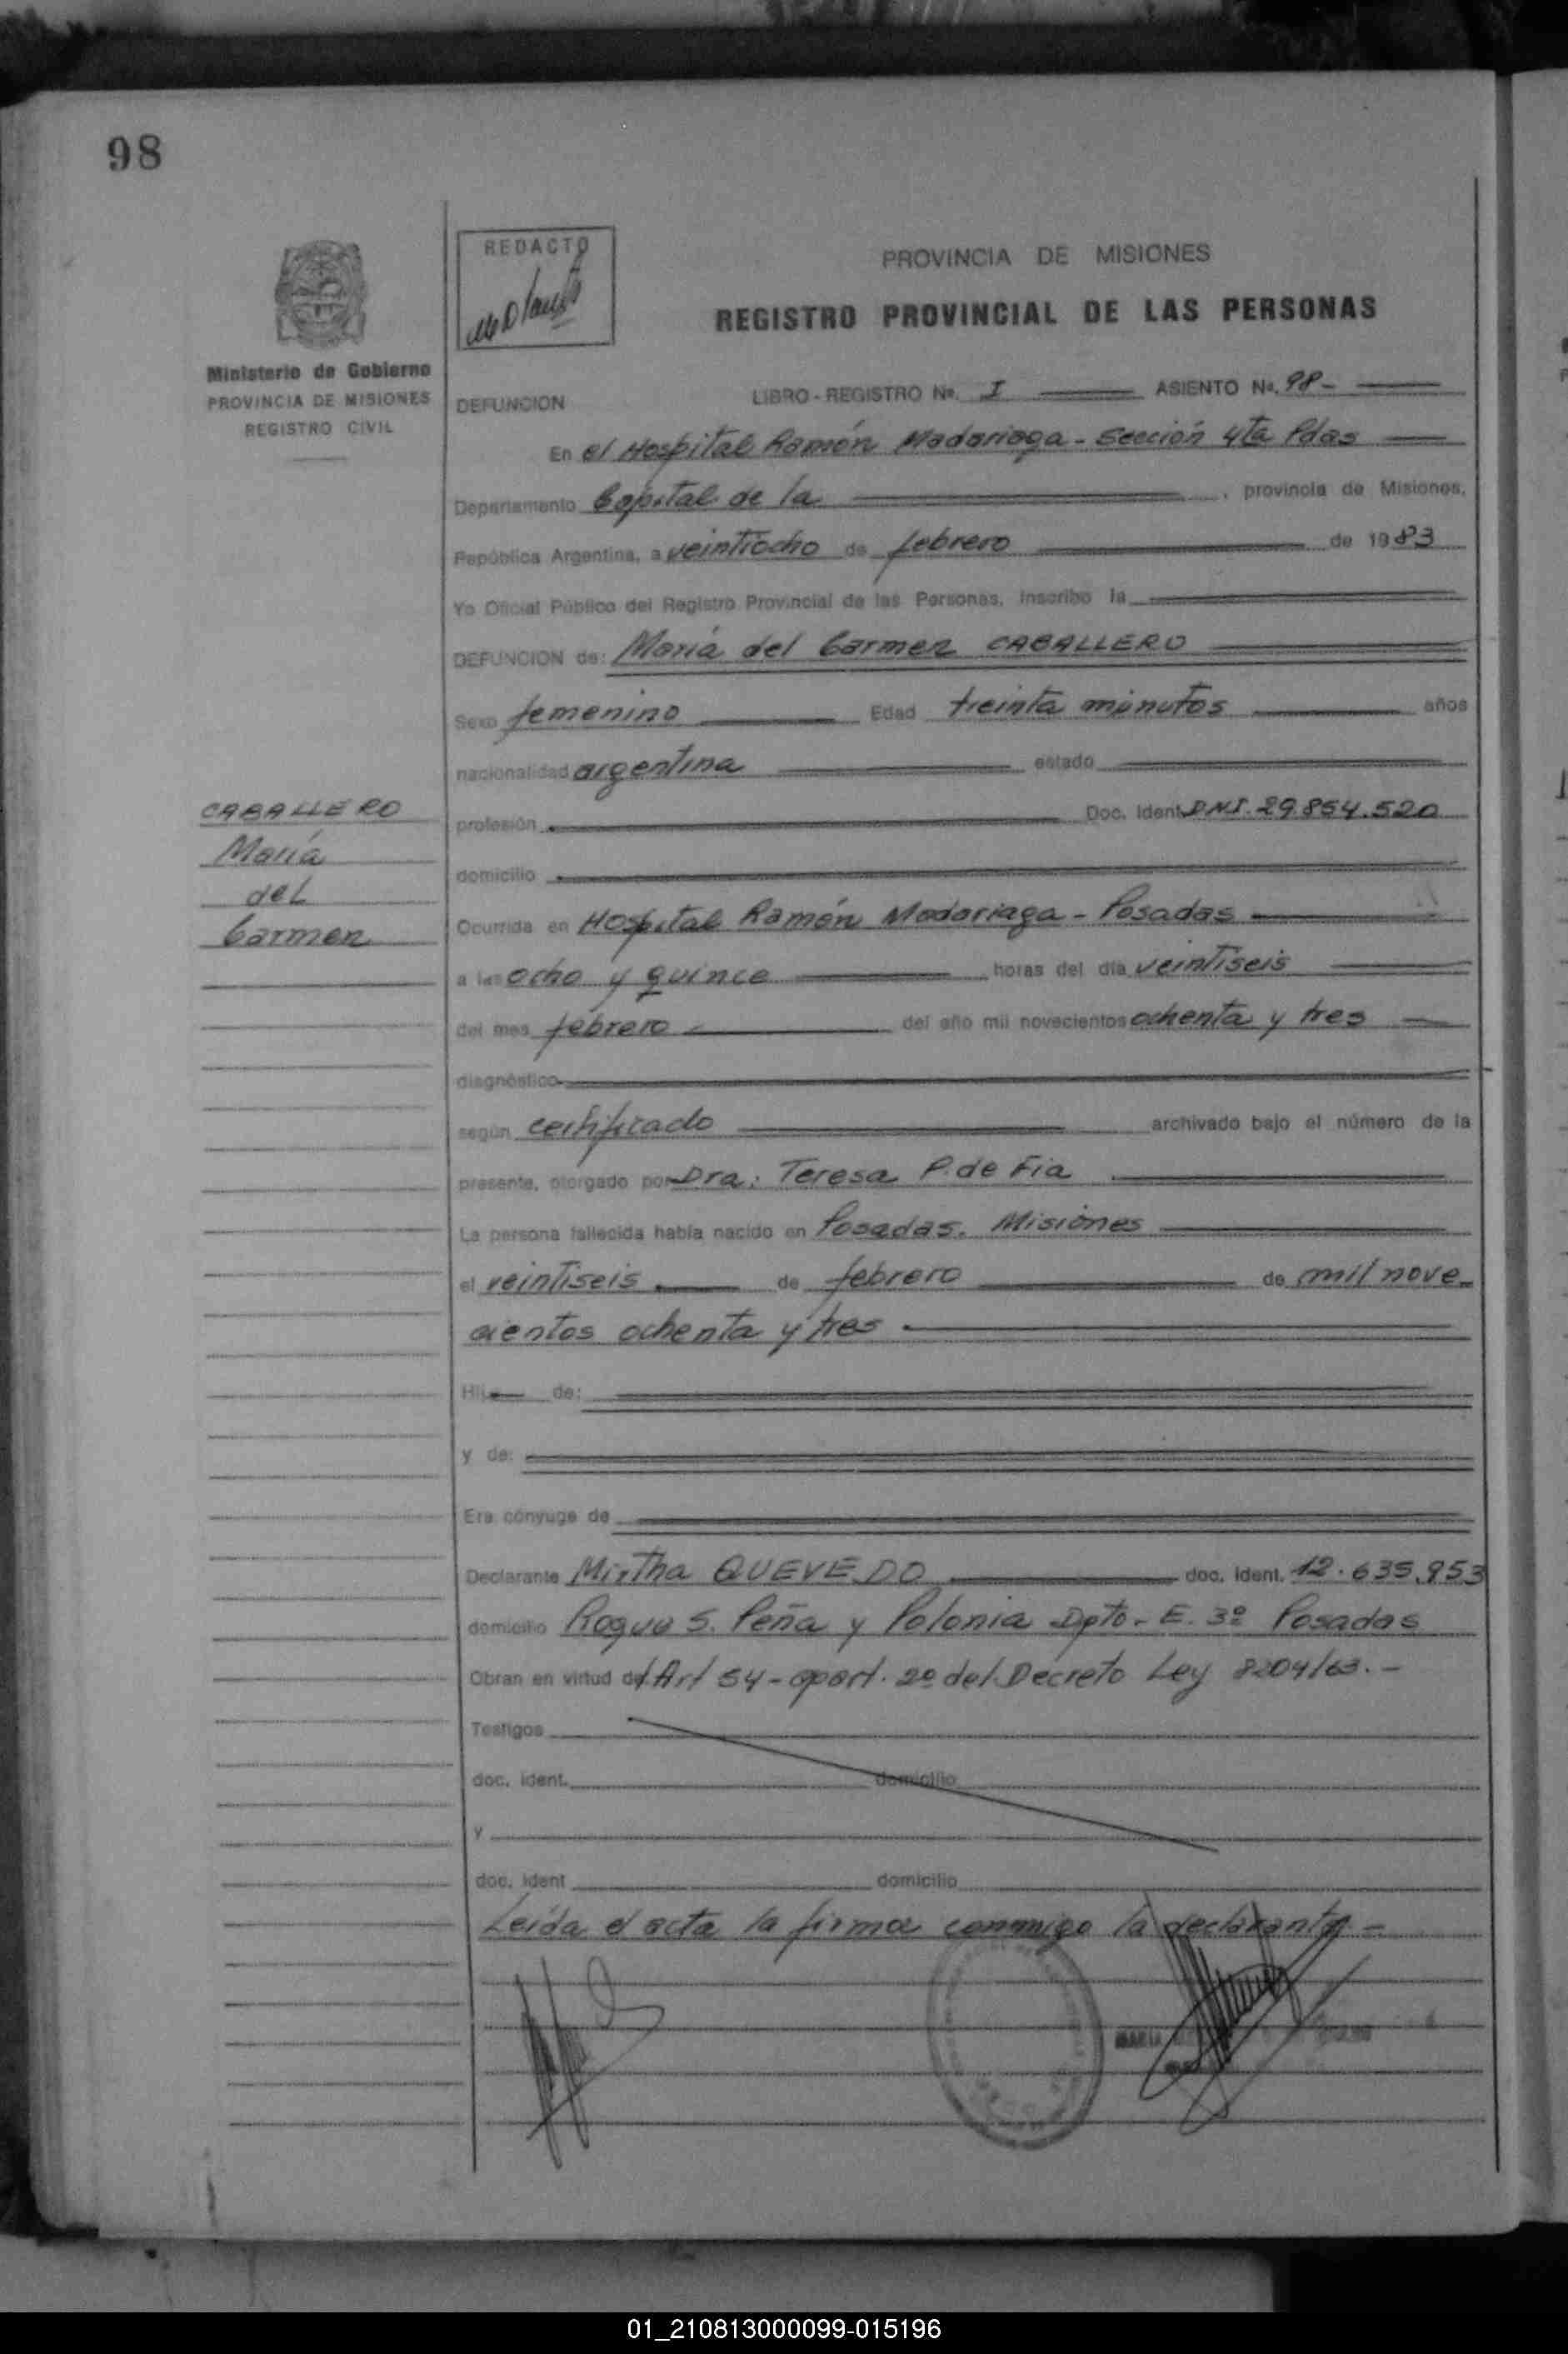 98
REDACTO
PROVINCIA DE MISIONES
REGISTRO PROVINCIAL DE LAS PERSONAS
Ministerio de Gobierno
PROVINCIA DE MISIONES
REGISTRO CIVIL
DEFUNCION LIBRO - REGISTRO No. I ASIENTO No. 98-
En el Hospital Ramón Madariaga - Sección 4ta Pdas
Departamento Capital de la , provincia de Misiones,
República Argentina, a veintiocho de febrero de 1983
Yo Oficial Público del Registro Provincial de las Personas, inscribo la
DEFUNCION de: María del Carmen CABALLERO
Sexo femenino Edad treinta minutos años
nacionalidad argentina estado
CABALLERO
María
del
Carmen
profesión Doc. Ident DNI. 29.854.520
domicilio
Ocurrida en Hospital Ramón Madariaga - Posadas
a las ocho y quince horas del día veintiseis
del mes febrero del año mil novecientos ochenta y tres
diagnóstico
según certificado archivado bajo el número de la
presente, otorgado por Dra: Teresa P. de Fia
La persona fallecida había nacido en Posadas. Misiones
el veintiseis de febrero de mil nove
cientos ochenta y tres
Hij de:
y de:
Era cónyuge de
Declarante Mirtha QUEVEDO doc. ident. 12.635.953
domicilio Roque S. Peña y Polonia Dpto - E. 3º Posadas
Obran en virtud del Art 54 - apart. 2º del Decreto Ley 8204/63.-
Testigos
doc. ident. domicilio
y
doc. ident domicilio
Leída el acta la firma conmigo la declarante -
MARIA
01_210813000099-015196